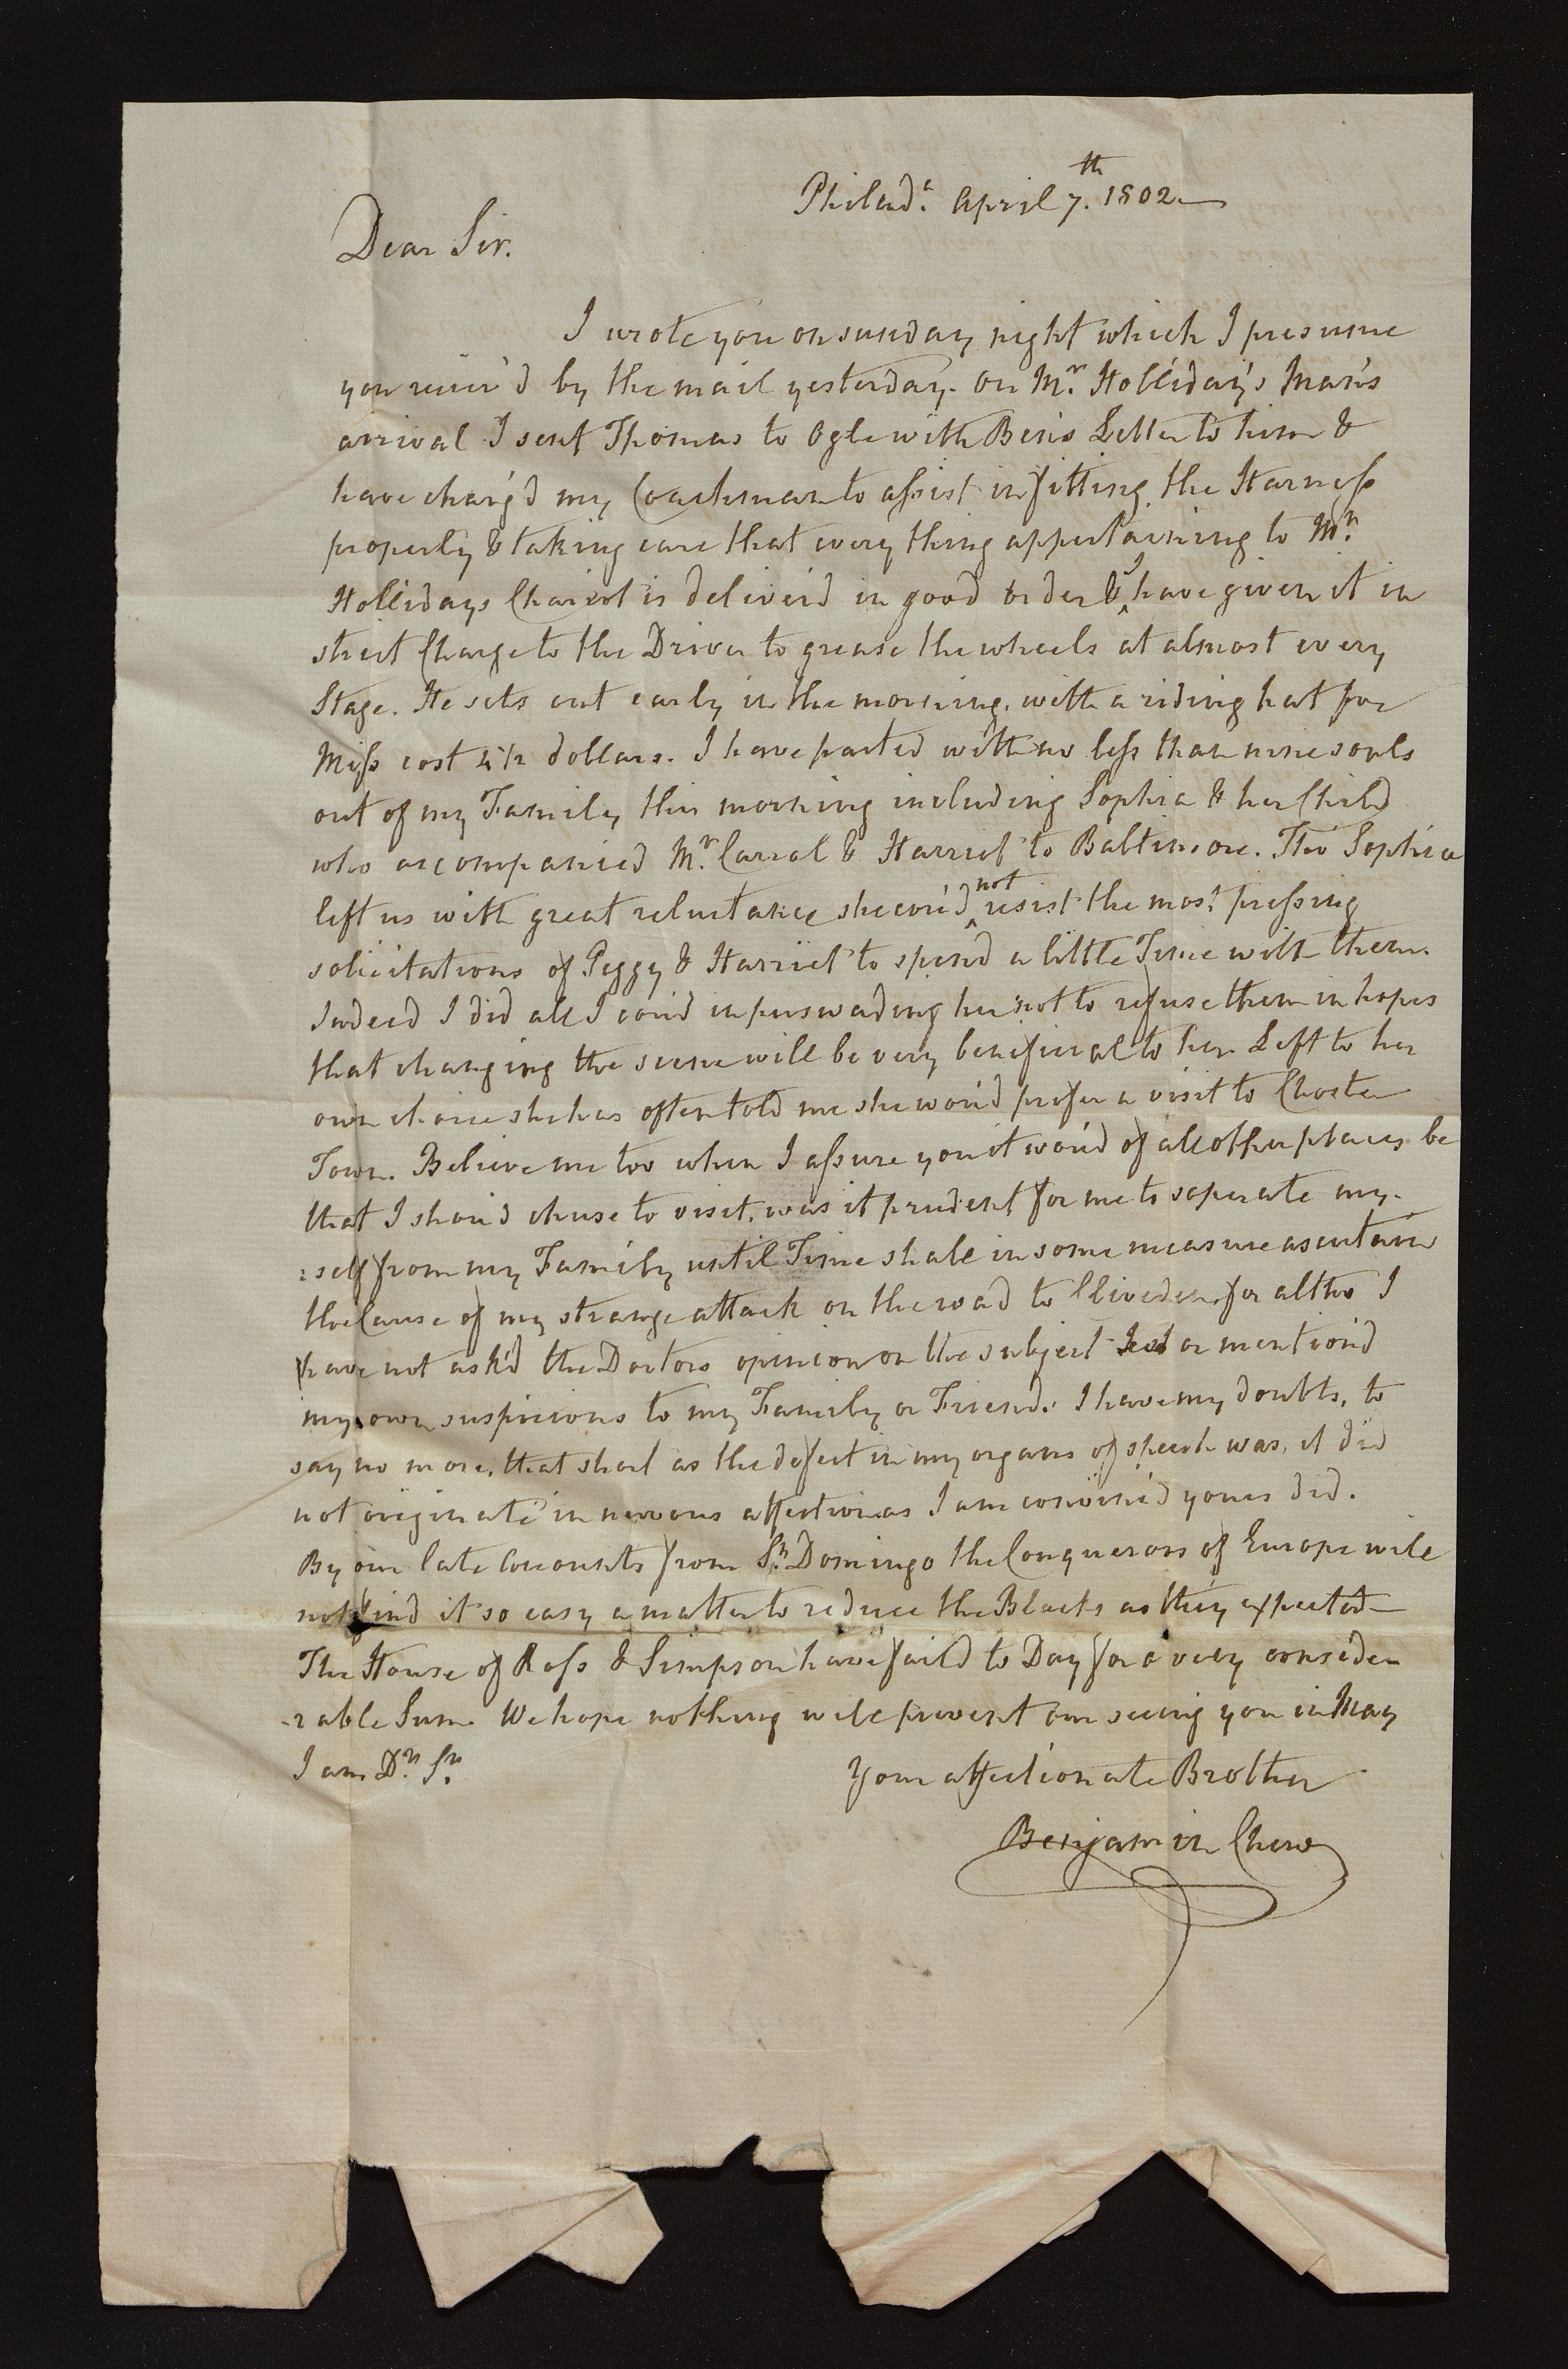 Philad.a April 7.th 1802
Dear Sir.
I wrote you on sunday night which I presume
you reciev'd by the mail yesterday. On Mr. Holliday's Man's
arrival I sent Thomas to Ogle with Ben's Letter to him &
have charg'd my Coachman to assist in fitting the Harness
properly & taking care that every thing appertaining to Mr.
Hollidays Chariot is deliver'd in good order & I have given it in
strict Charge to the Driver to grease the wheels at almost every
Stage. He sets out early in the morning, with a riding hat for
Miss cost 4 1/2 dollars. I have parted with no less than nine souls
out of my Family this morning including Sophia & her Child
who accompanied Mr. Carral & Harriet to Baltimore. Tho' Sophia
left us with great reluctance she cou'd not resist the most pressing
solicitations of Peggy & Harriet to spend a little Time with them.
Indeed I did all I cou'd in perswading her not to refuse them in hopes
that changing the scene will be very beneficial to her. Left to her
own choice she has often told me she wou'd prefer a visit to Chester
Town. Believe me too when I assure you it wou'd of all other places be
that I shou'd chuse to visit, was it prudent for me to seperate my-
:self from my Family until Time shall in some measure ascertain
the Cause of my strange attack on the road to Cliveden, for altho I
have not ask'd the Doctors opinion on the subject or mention'd
my own suspicions to my Family or Friends I have my doubts, to
say no more, that short as the defect in my organs of speech was, it did
not originate in nervous affection as I am convinc'd yours did.
By our late Accounts from St. Domingo the Conquerors of Europe will
not find it so easy a matter to reduce the Blacks as they expected—
The House of Ross & Simpson have fail'd to Day for a very conside
-rable Sum. We hope nothing will prevent our seeing you in May
I am Dr. Sr.
Your affectionate Brother
Benjamin Chew